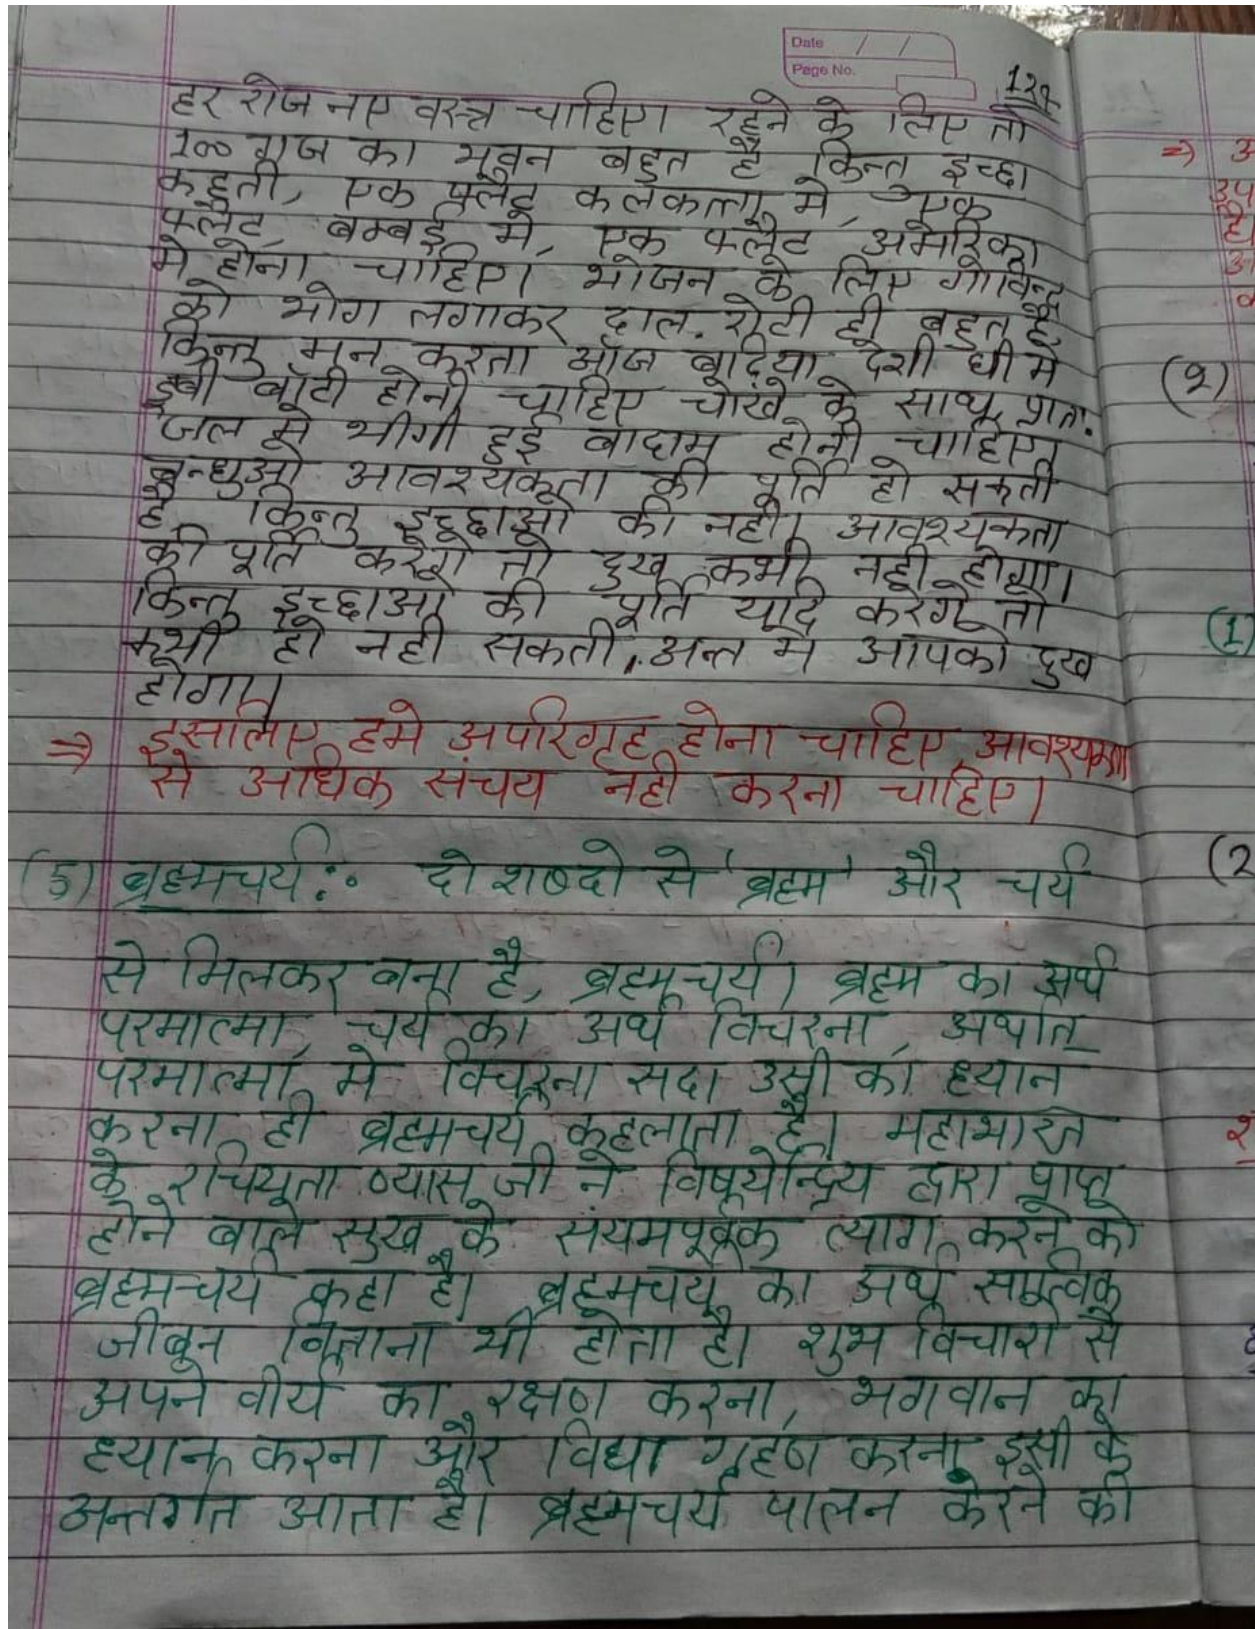 Date / /
Page No.
हर रोज नए वस्त्र चाहिए। रहने के लिए तो
100 गज का भवन बहुत है किन्तु इच्छा
कहती, एक फ्लैट कलकत्ता मे, एक
फ्लैट, बम्बई मे, एक फ्लैट अमेरिका
मे होना चाहिए। भोजन के लिए गोविन्द
को भोग लगाकर दाल-रोटी ही बहुत है,
किन्तु मन करता आज बढ़िया देशी घी मे
डूबी बॉटी होनी चाहिए चोखे के साथ, प्रात:
जल मे भीगी हुई बादाम होनी चाहिए,
बन्धुओ आवश्यकता की पूर्ति हो सकती
है किन्तु इच्छाओ की नही। आवश्यकता
की पूर्ति करेगे तो दुख कभी नही होगा।
किन्तु इच्छाओ की पूर्ति यदि करेगे तो
कभी हो नही सकती, अन्त मे आपको दुख
होगा।
⇒ इसलिए हमे अपरिगृह होना चाहिए, आवश्यकता
से अधिक संचय नही करना चाहिए।
(5) ब्रह्मचर्य:- दो शब्दो से 'ब्रह्म' और चर्य
से मिलकर बना है, ब्रह्मचर्य। ब्रह्म का अर्थ
परमात्मा, चर्य का अर्थ विचरना, अर्थात्
परमात्मा मे विचरना सदा उसी का ध्यान
करना ही ब्रह्मचर्य कहलाता है। महाभारत
के रचियता व्यास जी ने विषयेन्द्रिय द्वारा प्राप्त
होने वाले सुख के संयमपूर्वक त्याग करने को
ब्रह्मचर्य कहा है। ब्रह्मचर्य का अर्थ सात्विक
जीवन बिताना भी होता है। शुभ विचारो से
अपने वीर्य का रक्षण करना, भगवान का
ध्यान करना और विधा गृहण करना इसी के
अन्तर्गत आता है। ब्रह्मचर्य पालन करने की
⇒
(२)
(1)
(2